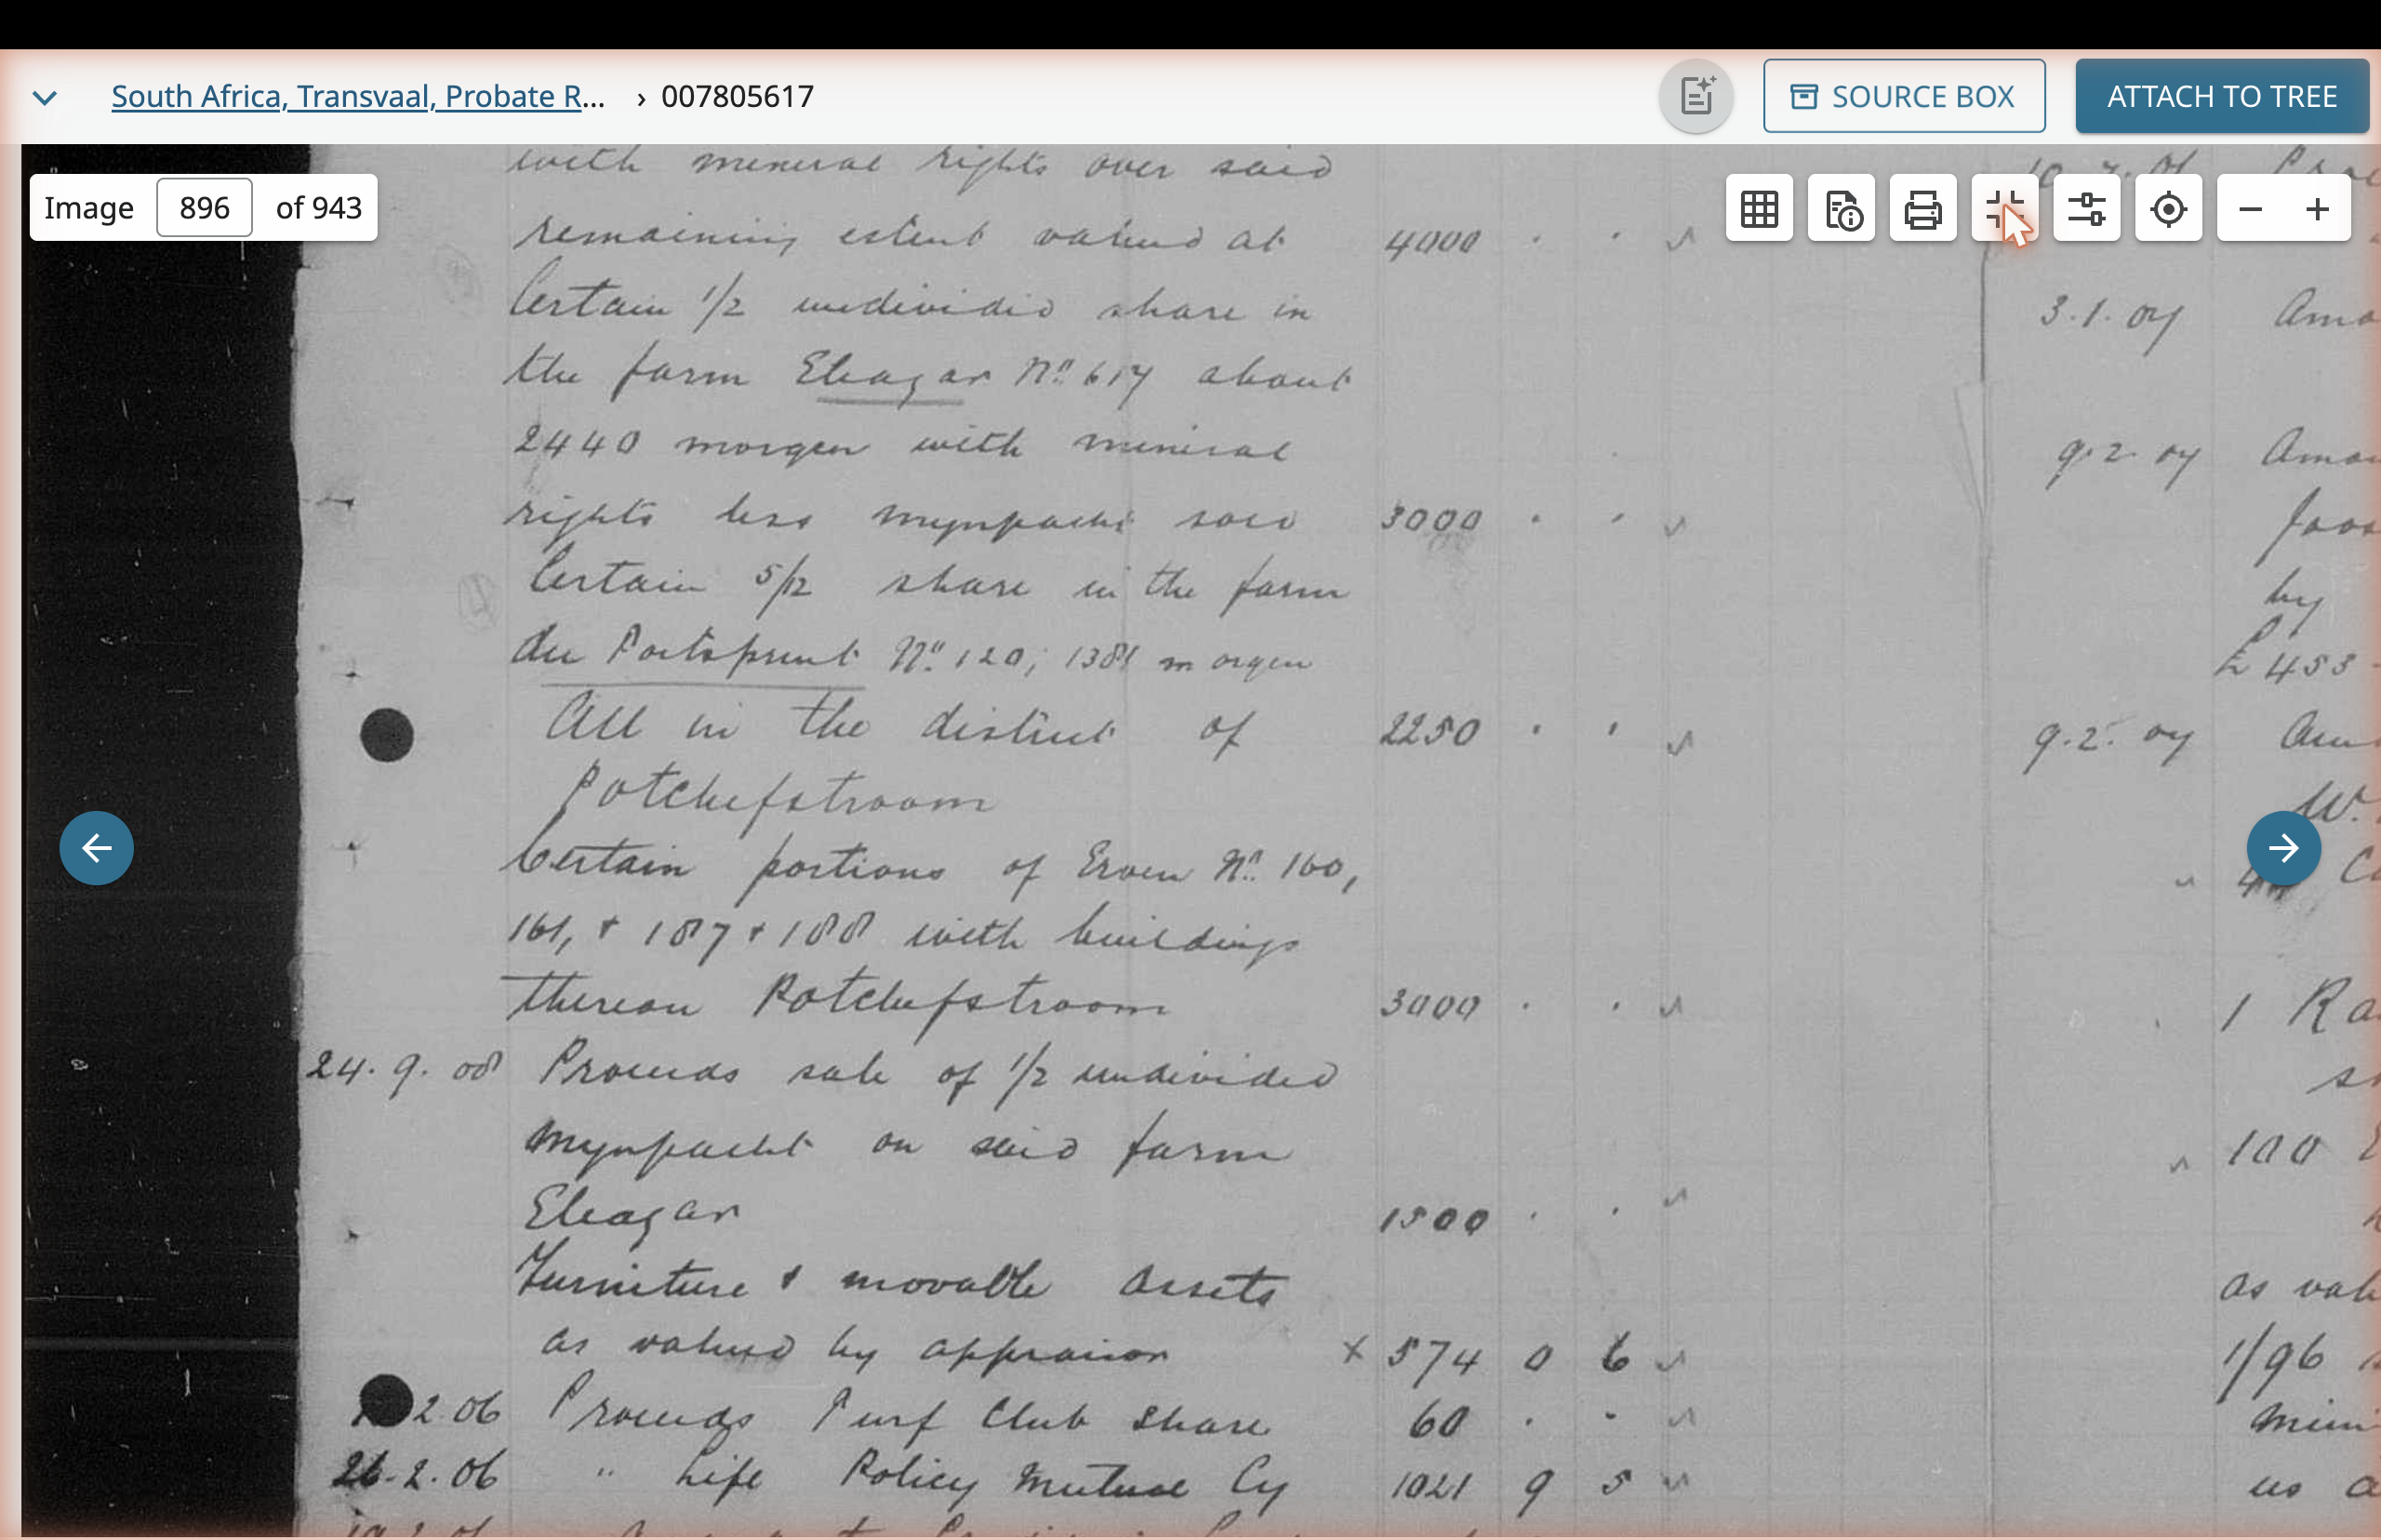 South Africa, Transvaal, Probate R... › 007805617
SOURCE BOX
ATTACH TO TREE
Image 896 of 943
with mineral rights over said
remaining extent valued at 4000 . .
Certain 1/2 undivided share in
the farm Eleazar No. 617 about
2440 morgen with mineral
rights less mynpacht sold 3000 . .
Certain 5/12 share in the farm
No. 120; 1381 morgen
All in the district of 2250 . .
Potchefstroom
Certain portions of Erven No. 160,
161, + 187 + 188 with buildings
thereon Potchefstroom 3000 . .
24. 9. 08 Proceeds sale of 1/2 undivided
mynpacht on said farm
Eleazar 1500 . .
Furniture & movable assets
as valued by appraisor x 574 0 6
2.06 Proceeds Turf Club Share 60 . -
26.2.06 " Life Policy Mutual Cy 1021 9 5
3.1.07
9.2.07
by
£453
9.2.07
W.
1
100
1/96